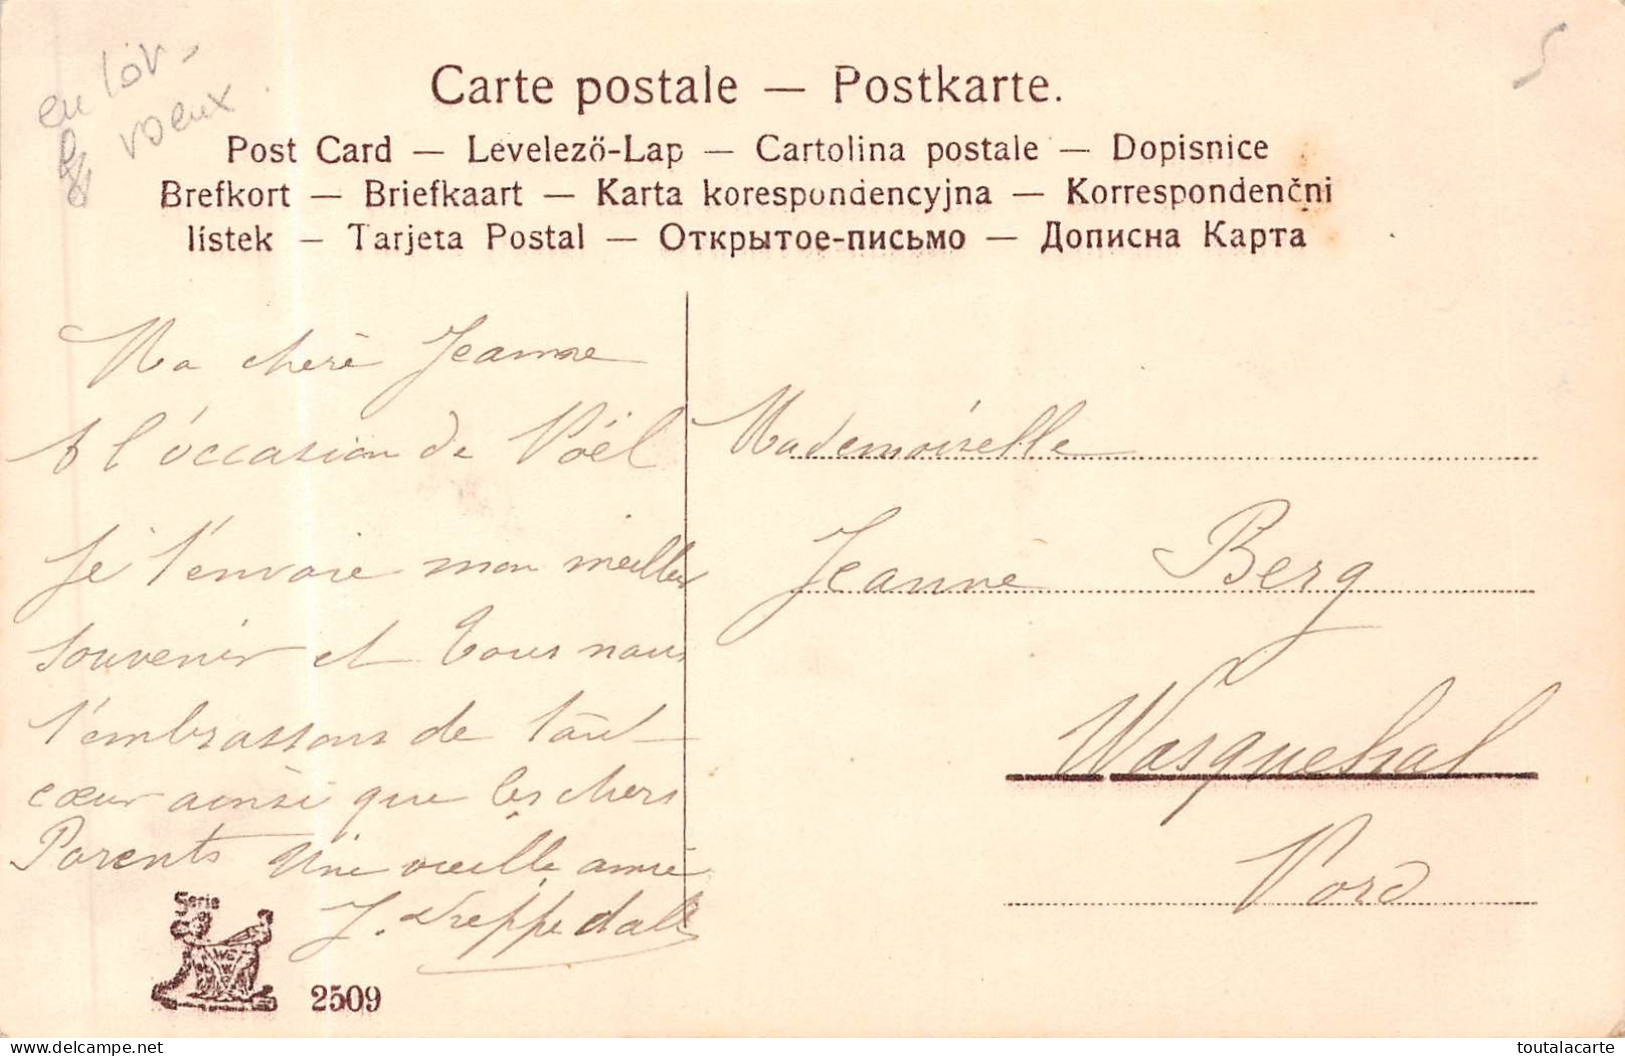 Carte postale — Postkarte.
Post Card — Levelező-Lap — Cartolina postale — Dopisnice
Brefkort — Briefkaart — Karta korespondencyjna — Korrespondenčni
lístek — Tarjeta Postal — Открытое-письмо — Дописна Карта
voeux
5
Ma chère Jeanne
A l'occasion de Noël
Je t'envoie mon meilleur
souvenir et tous nous
t'embrassons de tout
cœur ainsi que les chers
Parents Une vieille amie
J.
Mademoiselle
Jeanne Berg
Wasquehal
Nord
Serie
2509
delcampe.net
toutalacarte